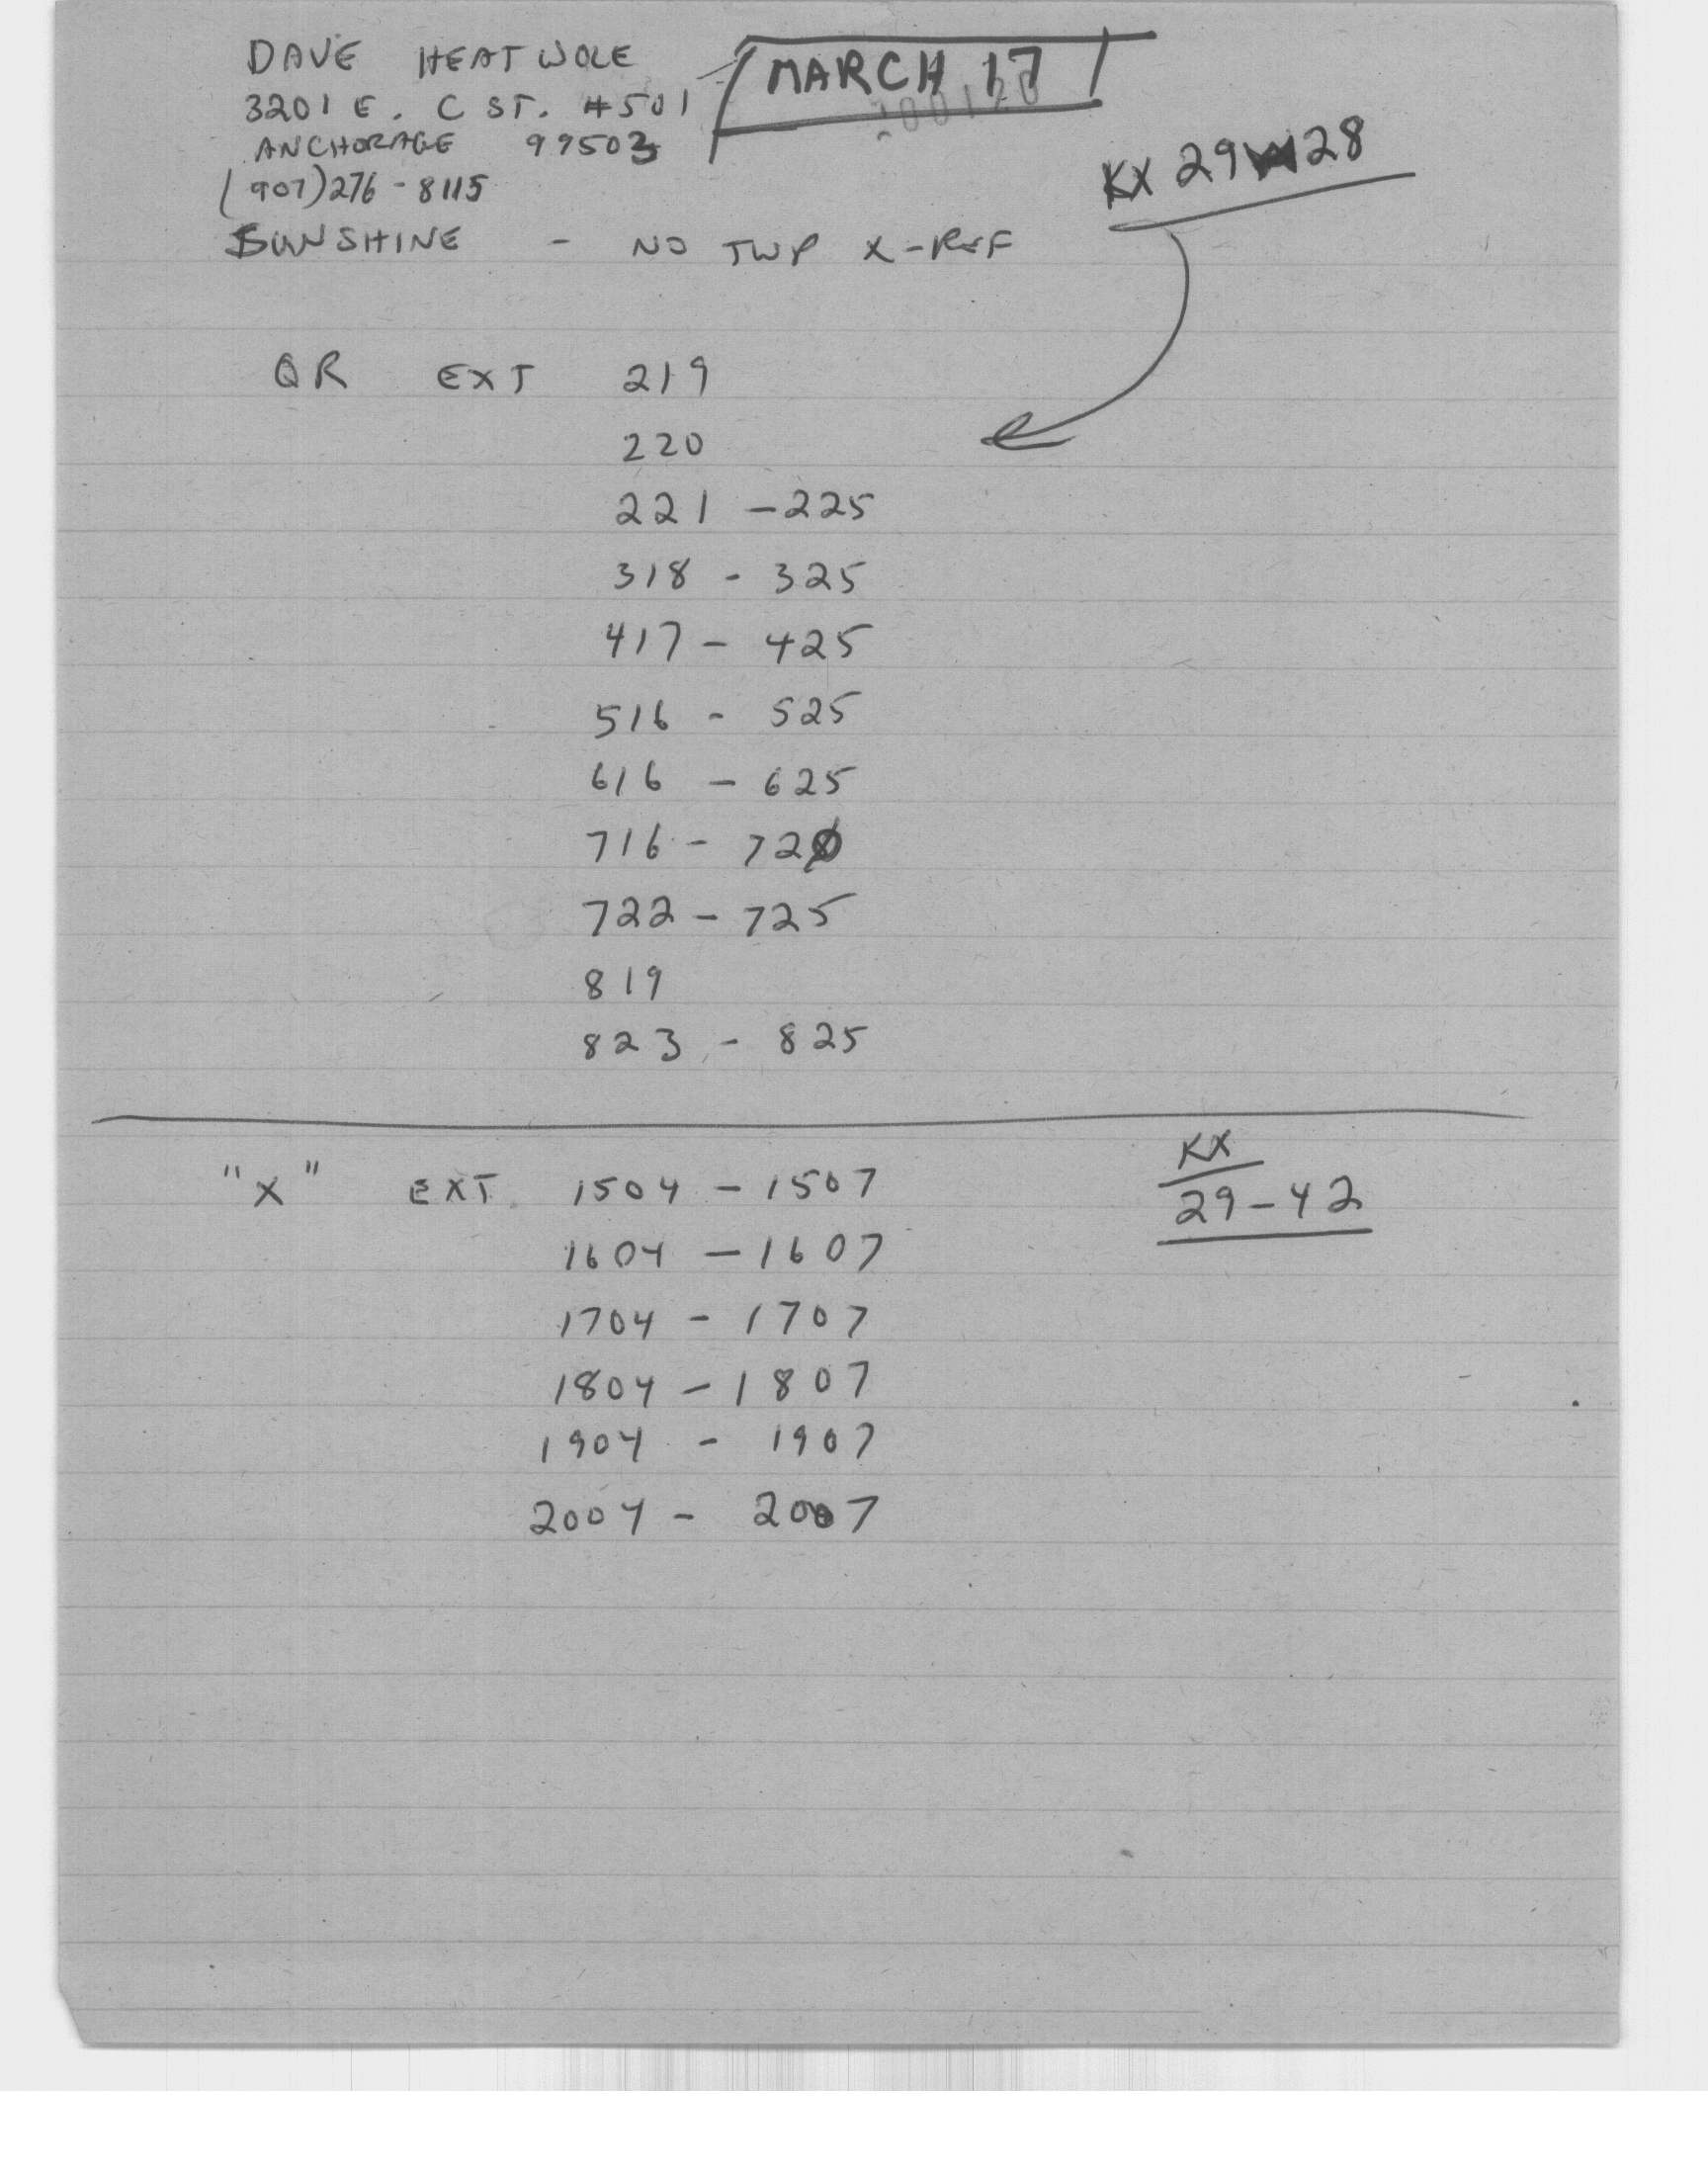 DAVE HEATWOLE
MARCH 17
3201 E. C ST. #501
ANCHORAGE 99503
(907) 276-8115
KX 29 28
SUNSHINE - NO TWP X-REF
QR EXT 219
220
221 - 225
318 - 325
417 - 425
516 - 525
616 - 625
716 - 720
722 - 725
819
823 - 825
KX
"X" EXT. 1504 - 1507 29-42
1604 - 1607
1704 - 1707
1804 - 1807
1904 - 1907
2004 - 2007